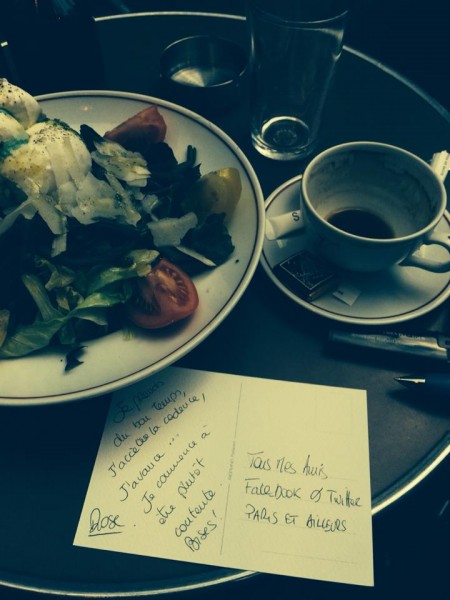 Je prends
du bon temps,
J'accélère la cadence,
J'avance...
Je commence à
être plutôt
contente.
Bises!
Rose
Tous mes Amis
Facebook & Twitter
Paris et Ailleurs